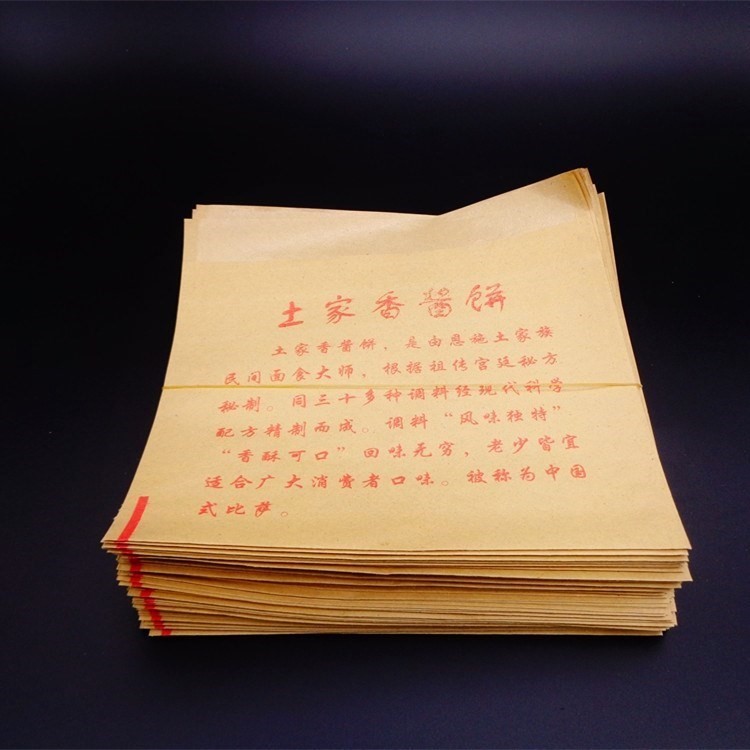 土家香酱饼
土家香酱饼，是由恩施土家族
民间面食大师，根据祖传宫廷秘方
秘制。同三十多种调料经现代科学
配方精制而成。调料“风味独特”
“香酥可口”回味无穷，老少皆宜
适合广大消费者口味。被称为中国
式比萨。